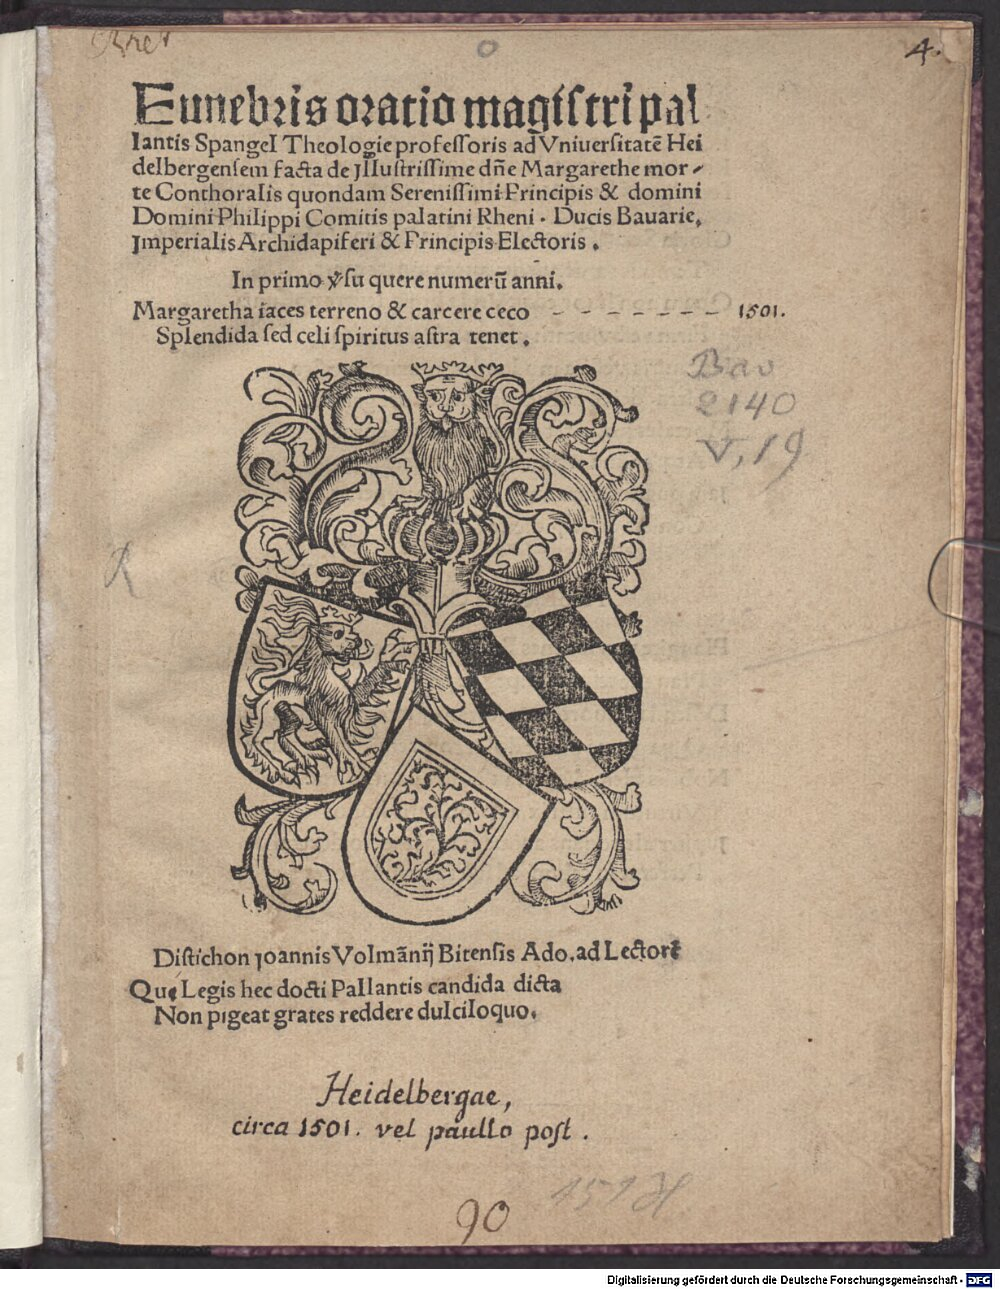 Bret
0
4.
Funebris oratio magistri pal
lantis Spangel Theologie professoris ad Vniuersitatē Hei
delbergensem facta de Jllustrissime dn̄e Margarethe mor-
te Conthoralis quondam Serenissimi Principis & domini
Domini Philippi Comitis palatini Rheni. Ducis Bauarie,
Jmperialis Archidapiferi & Principis Electoris.
In primo ꝟsu quere numerū anni.
Margaretha iaces terreno & carcere ceco - - - - - - - 1501.
Splendida sed celi spiritus astra tenet.
Bav
2140
V, 19
R
Distichon Joannis Volmānij Bitensis Ado. ad Lectorē
Quę Legis hec docti Pallantis candida dicta
Non pigeat grates reddere dulciloquo.
Heidelbergae,
circa 1501. vel paullo post.
90
Digitalisierung gefördert durch die Deutsche Forschungsgemeinschaft - DFG